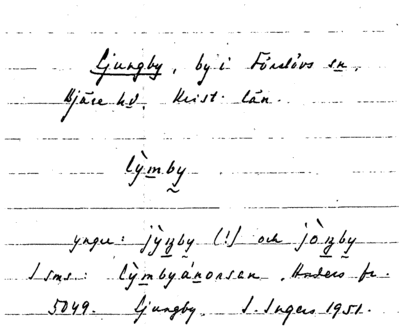 Ljungby, by i Förslövs sn,
Bjäre hd. Krist. län.
lỳmby
yngre: jỳŋby (!) och jòŋby
I sms: lỳmbyánorsan, Anders fr.
5049. Ljungby. I. Ingers 1951.